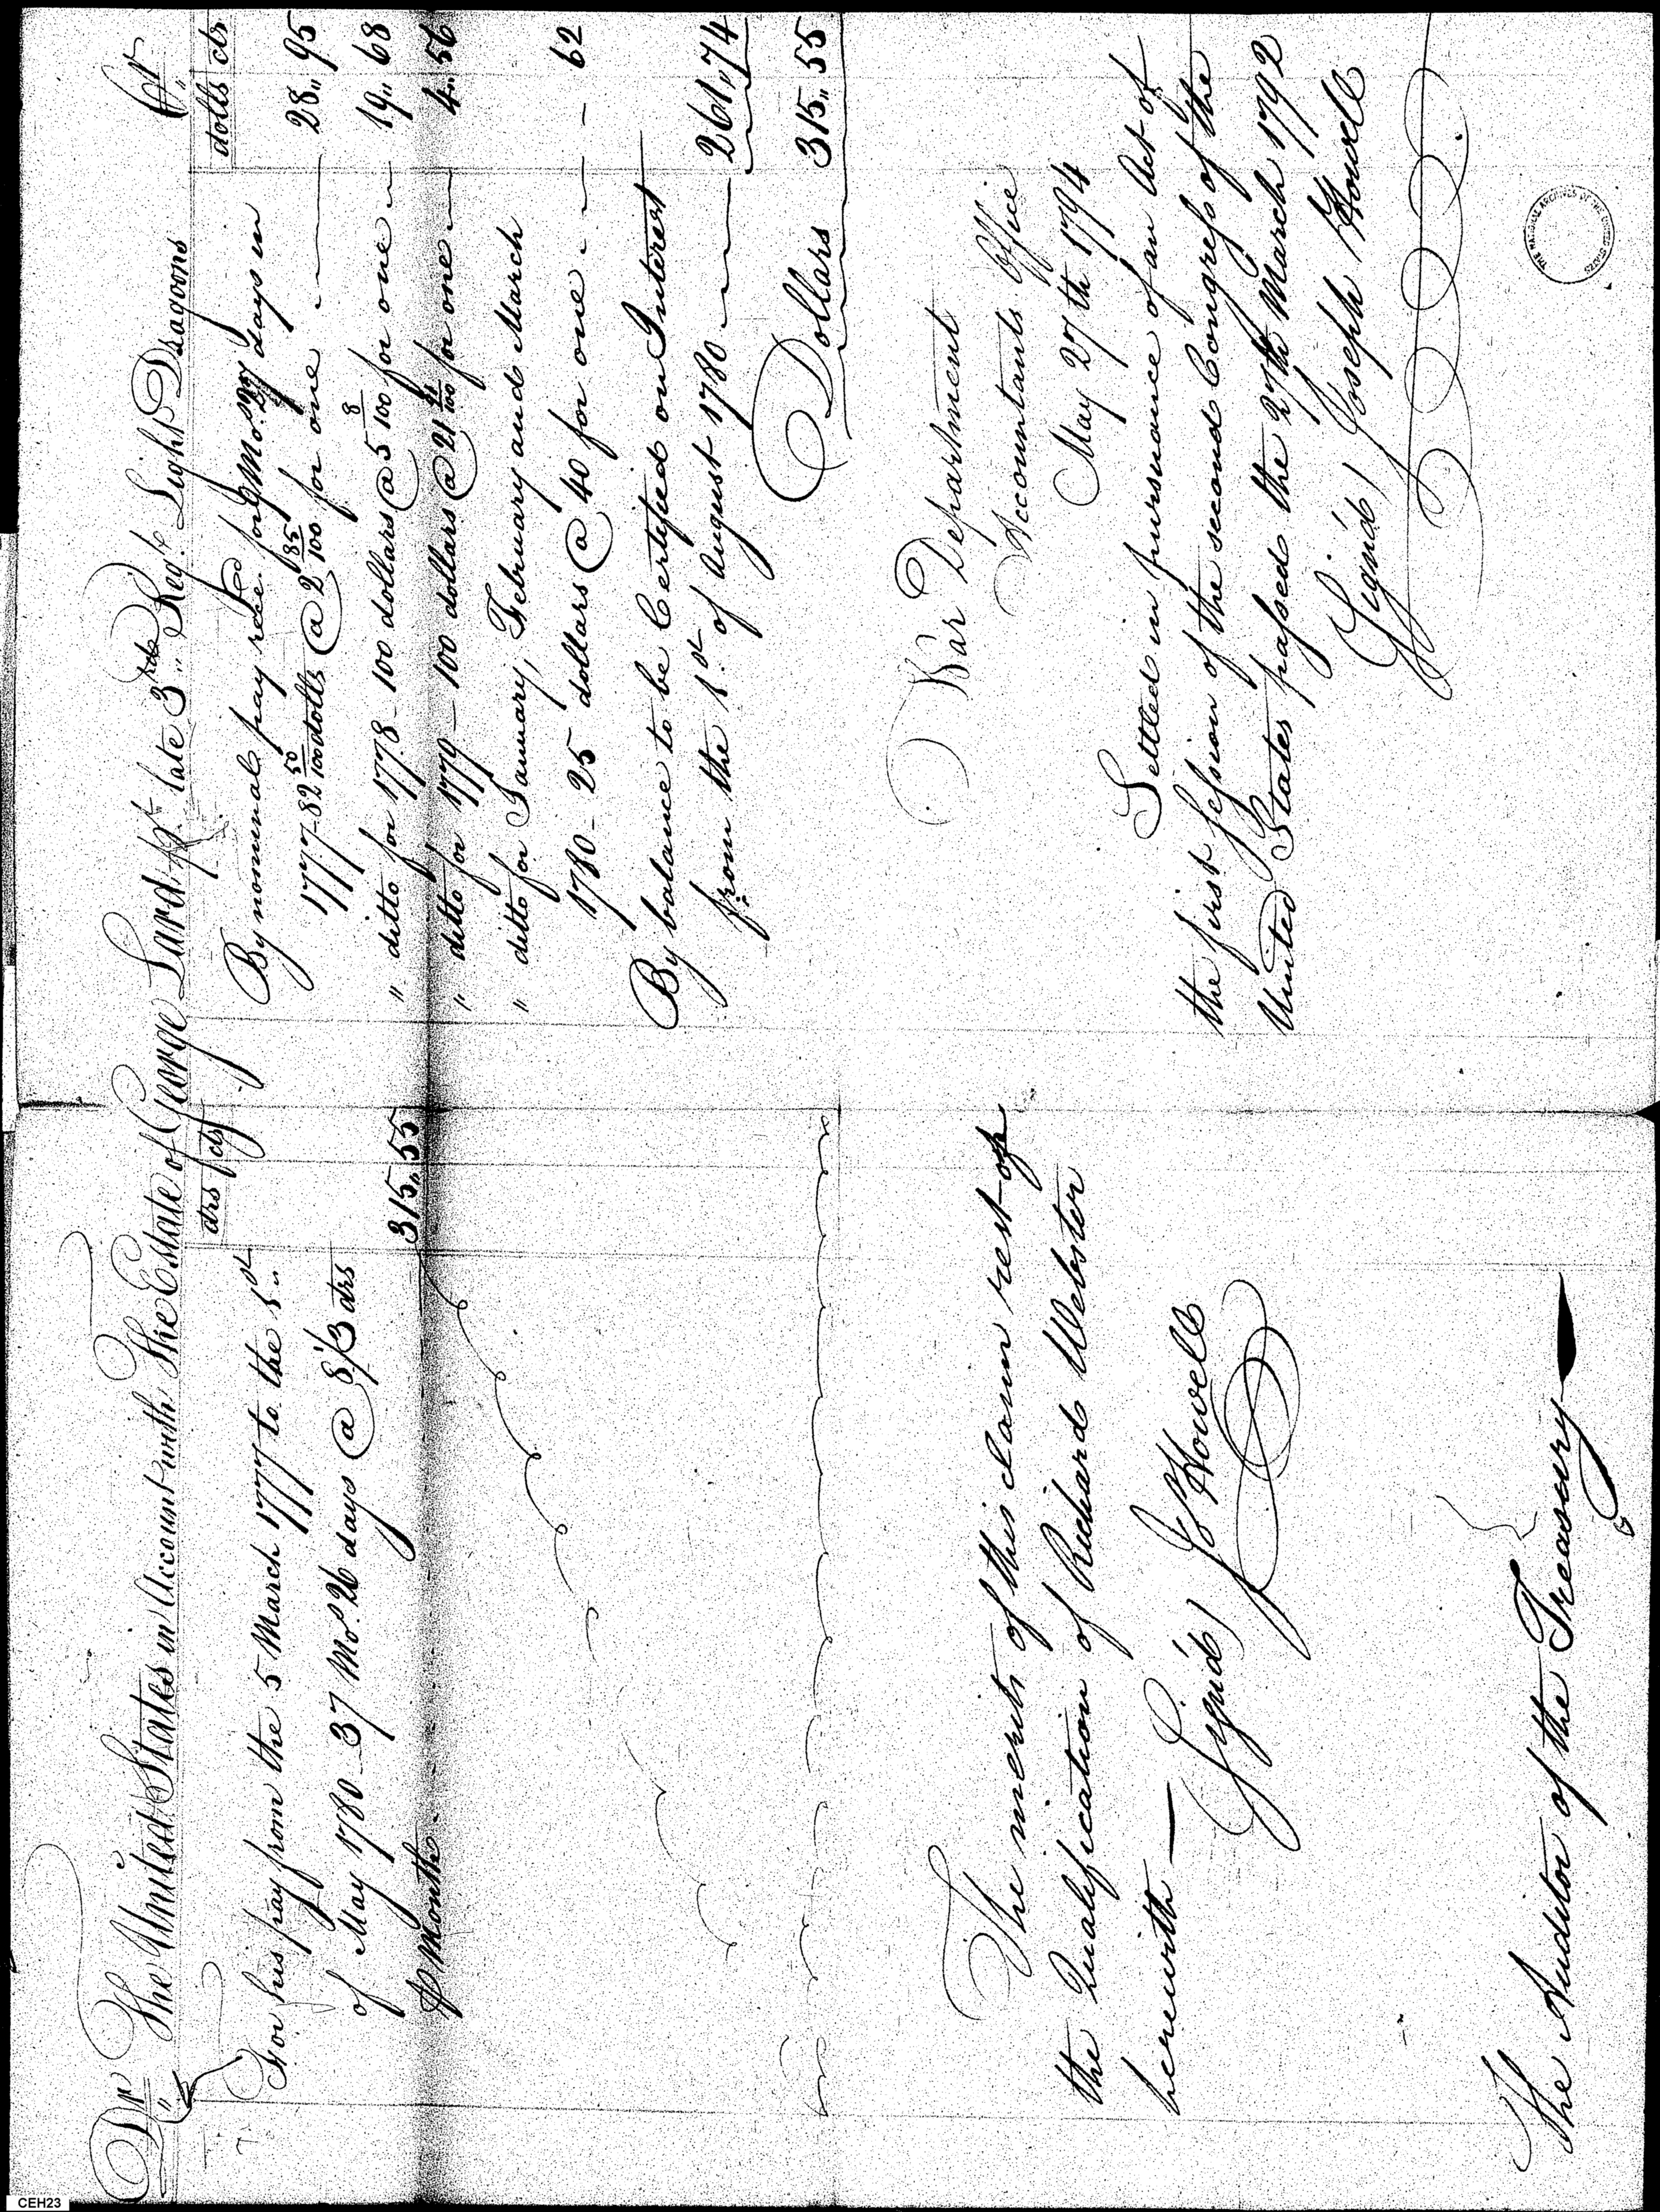 Dr The United States in Account with The Estate of George Lard late 3rd Regt Light Dragoons Cr
drs cts
For his pay from the 5 March 1777 to the 1st
of May 1780 - 37 Mos. 26 days @ 8 1/3 drs
⅌ Month - 315,,55
dolls cts
By nominal pay recd. for 9 Mos. 27 days in
1777 - 82 50/100 dolls @ 2 85/100 for one 28,,95
" ditto for 1778 - 100 dollars @ 5 8/100 for one 19,,68
" ditto for 1779 - 100 dollars @ 21 91/100 for one 4,,56
" ditto for January, February and March
1780 - 25 dollars @ 40 for one - - 62
By balance to be Certified on Interest
from the 1st. of August 1780 261,,74
Dollars 315,,55
The merits of this claim rest on
the Qualification of Richard Webster
herewith —
(Signd) J Howell
The Auditor of the Treasury
War Department
Accountants Office
May 27th 1794
Settled in pursuance of an Act of
the first session of the second Congress of the
United States passed the 27th March 1792
(Signd) Joseph Howell
THE NATIONAL ARCHIVES OF THE UNITED STATES
CEH23